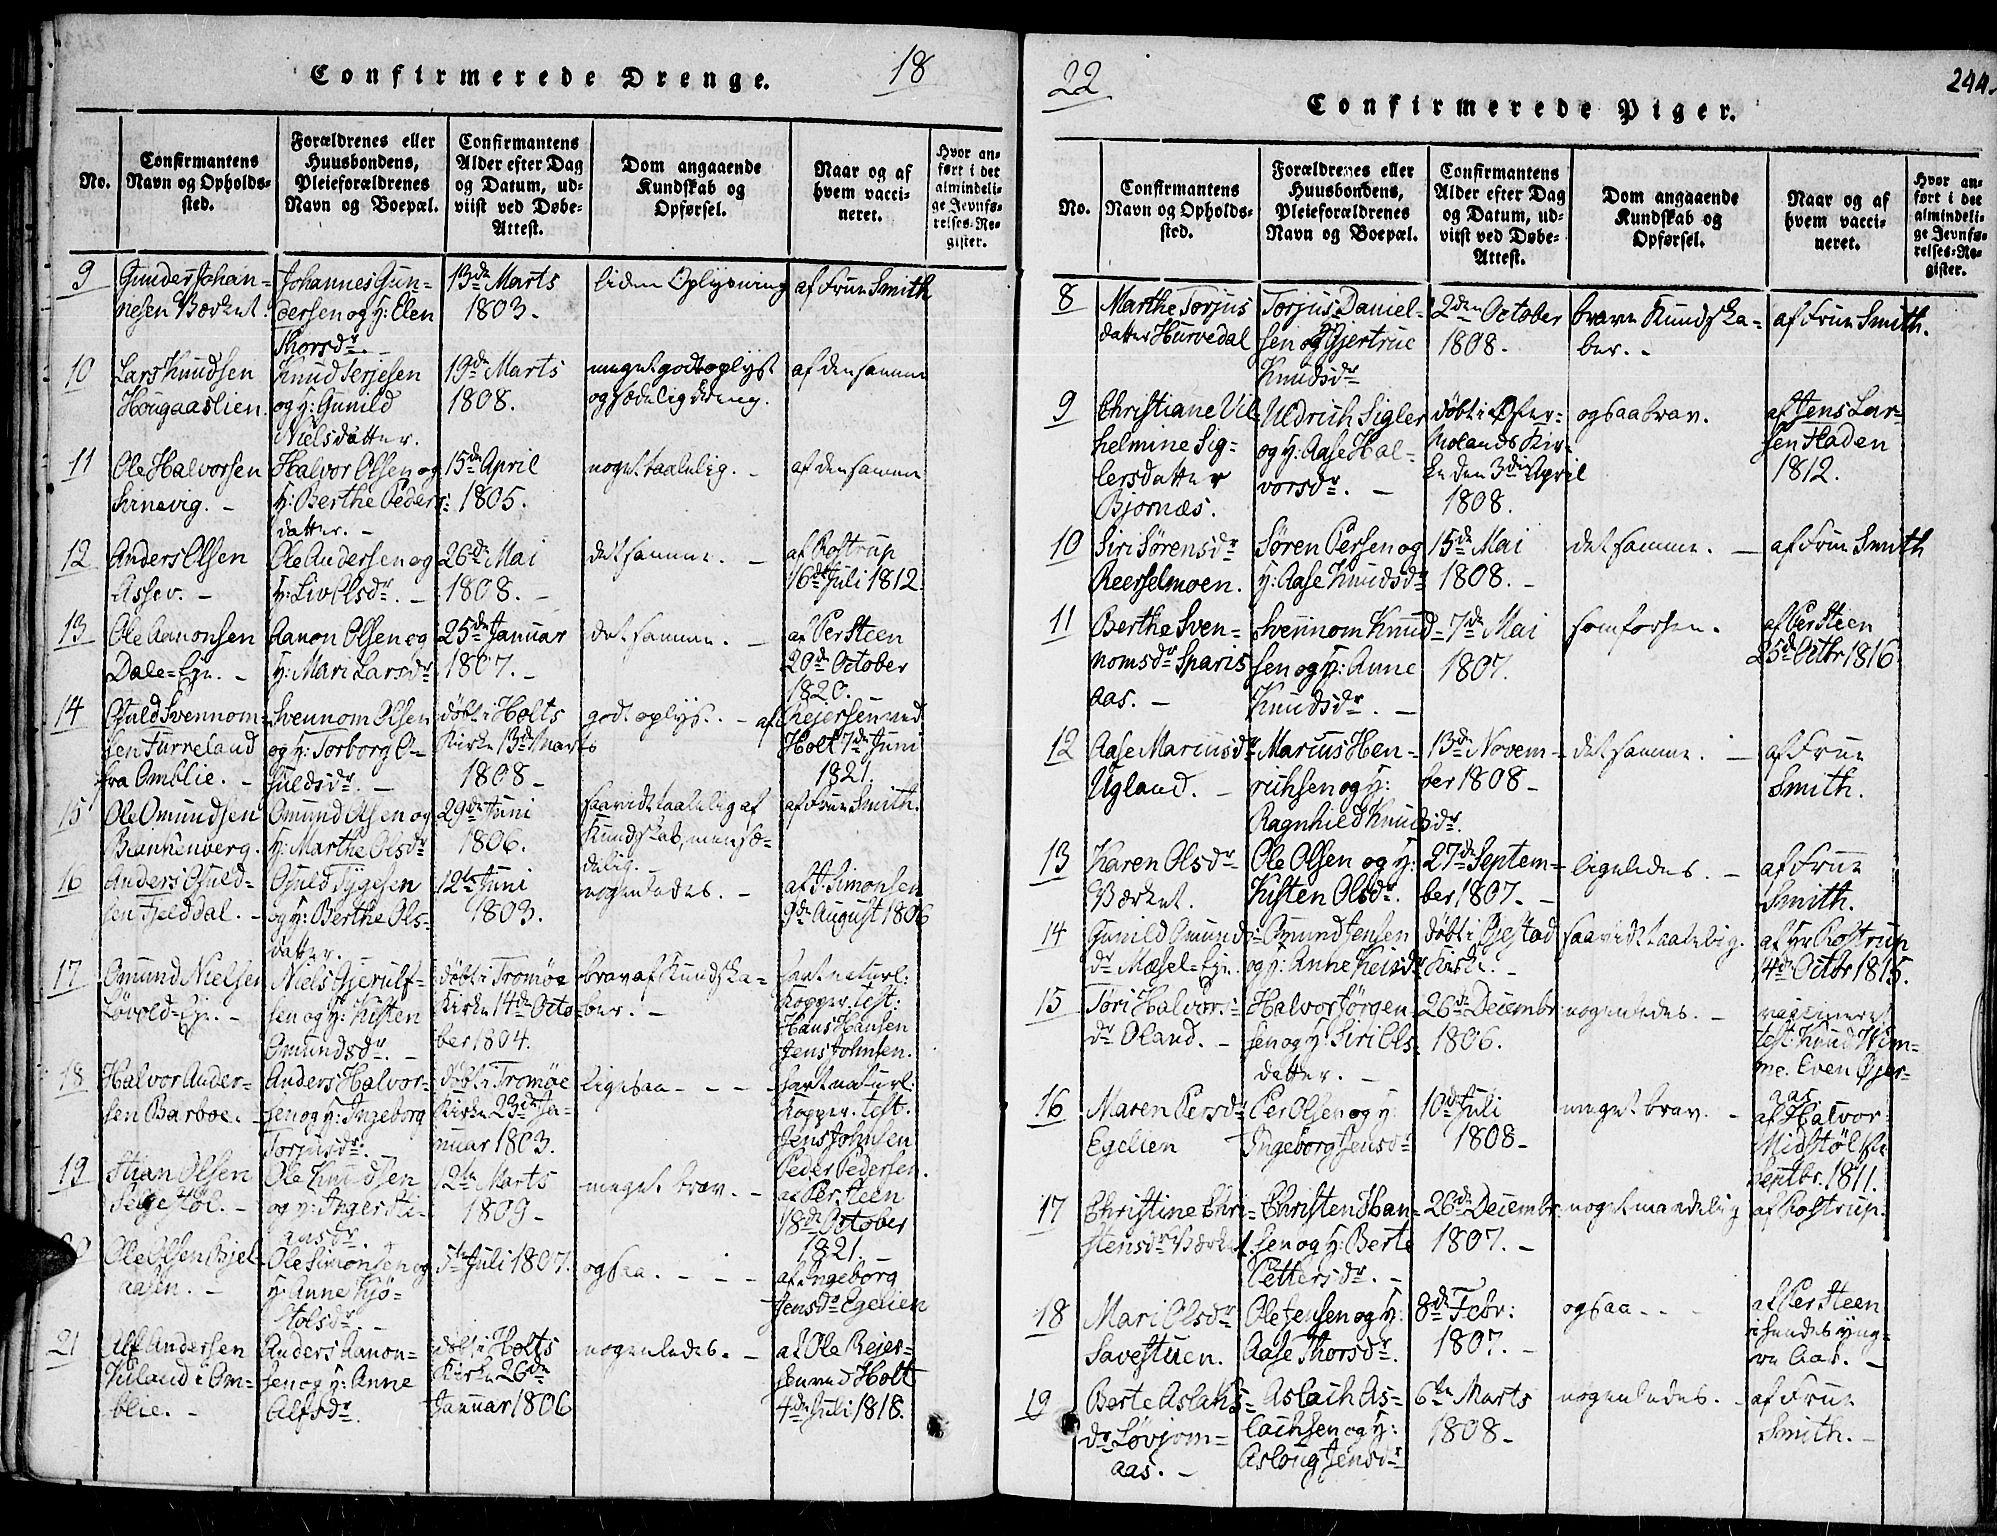 Confirmerede Drenge.
18
No.
Confirmantens
Navn og Opholds-
sted.
Forældrenes eller
Huusbondens,
Pleieforældrenes
Navn og Boepæl.
Confirmantens
Alder efter Dag
og Datum, ud-
viist ved Døbe-
Attest.
Dom angaaende
Kundskab og
Opførsel.
Naar og af
hvem vacci-
neret.
Hvor an-
ført i det
almindeli-
ge Jevnfø-
relses-Re-
gister.
9
Gunder Johan-
nesen Værket.
Johannes Gun-
dersen og H: Elen
Thorsdr. -
13de Marts
1803.
liden Oplysning
af Frue Smith
10
Lars Knudsen
Hougaaslien.
Knud Terjesen
og H: Gunild
Nielsdatter.
19de Marts
1808.
meget godt oplyst
og sædelig Dreng.
af den samme
11
Ole Halvorsen
Svinevig. -
Halvor Olsen og
H: Berthe Peders-
datter. -
15de April
1805.
noget taalelig. -
af den samme
12
Anders Olsen
Assev. -
Ole Andersen og
H: Liv Olsdr. -
26de Mai
1808. -
det samme. -
af Rostrup
16de Juli 1812
13
Ole Aanonsen
Dale-Eje. -
Aanon Olsen og
H: Mari Larsdr
25de Januar
1807. -
det samme. -
af Per Steen
20de October
1820. -
14
Ofuld Svennom-
sen Furreland
fra Omblie. -
Svennom Olsen
og H: Torborg O-
fuldsdr. -
døbt i Holts
Kirke 13de Marts
1808 -
godt oplyst. -
af Rejersen ved
Holt 7de Juni
1821.
15
Ole Omundsen
Blankenberg.
Omund Olsen og
H: Marthe Olsdr
29de Juni
1806.
saavidt taalelig af
Kundskab, men sæ-
delig.
af Frue Smith.
16
Anders Ofuld-
sen Fjelddal. -
Ofuld Tygesen
og H: Berthe Ols-
datter.
12te Juni
1803.
nogenledes. -
af T. Simonsen
9de August 1806
17
Omund Nielsen
Løvold-Eje. -
Niels Gjerulf-
sen og H: Kisten
Omundsdr. -
døbt i Tromøe
Kirke 14de Octo-
ber 1804.
brav af Kundska-
ber. -
havt naturl:
Kopper. test:
Hans Hansen
Jens Johnsen.
18
Halvor Ander-
sen Barboe. -
Anders Halvor-
sen og H: Ingeborg
Torjusdr. -
døbt i Tromøe
Kirke 23de Ja-
nuar 1803.
ligesaa - - -
havt naturl:
Kopper. test.
Jens Johnsen
Peder Pedersen.
19
Stian Olsen
Selgestøl. -
Ole Knudsen
og H: Inger Sti-
ansdr. -
12te Marts
1809 -
meget brav. -
af Per Steen
18de October
1821. -
Ole Olsen Bjel-
aasen. -
Ole Simonsen og
H: Anne Kjø-
stolsdr. -
5te Juli 1807.
ogsaa. - - -
af Ingeborg
Jensdr Egelien
21
Alf Andersen
Vuland i Om-
blie. -
Anders Aanon-
sen og H: Anne
Alfsdr.
døbt i Holts
Kirke 26de
Januar 1806
nogenledes. -
af Ole Rejer-
sen ved Holt
4de Juli 1818.
22
244.
Confirmerede Piger.
No.
Confirmantens
Navn og Opholds-
sted.
Forældrenes eller
Huusbondens,
Pleieforældrenes
Navn og Boepæl.
Confirmantens
Alder efter Dag
og Datum, ud-
viist ved Døbe-
Attest.
Dom angaaende
Kundskab og
Opførsel.
Naar og af
hvem vacci-
neret.
Hvor an-
ført i det
almindeli-
ge Jevnfø-
relses-Re-
gister.
8
Marthe Torjus
datter Hurvedal
Torjus Daniel-
sen og Gjertrue
Knudsdr
2den October
1808.
brave Kundska-
ber. -
af Frue Smith.
9
Christiane Vil
helmine Sig-
lersdatter
Bjornæs.
Uldrich Sigler
og H: Aase Hal-
vorsdr. -
døbt i Øster-
Molands Kir-
ke den 3die April
1808.
ogsaa brav.
af Jens Lar-
sen Staden
1812.
10
Siri Sørensdr
Reerselmoen.
Søren Persen og
H: Aase Knudsdr
15de Mai
1808. -
det samme. -
af Frue Smith
11
Berthe Sven-
nomsdr Sparis
aas. -
Svennom Knud-
sen og H: Anne
Knudsdr. -
7de Mai
1807.
som forhen.
af Per Steen
25de Octbr 1816
12
Aase Mariusdr
Ugland. -
Marius Hen-
richsen og H:
Ragnhild Knudsdr.
13de Novem-
ber 1808 -
det samme. -
af Frue
Smith.
13
Karen Olsdr
Værket.
Ole Olsen og H:
Kisten Olsdr.
27de Septem-
ber 1807. -
ligeledes. -
af Frue
Smith.
14
Gunild Omunds-
dr Mæsel-Eje. -
Omund Jensen
og H: Anne Reisdr
døbt i Gjestad
Kirke. -
saavidt taalelig.
af Hr Rostrup
14de Octbr 1815.
15
Tøri Halvors-
dr Oland. -
Halvor Jørgen-
sen og H: Siri Ols-
datter. -
26de Decembr
1806.
nogenledes. -
vaccineret
test. Knud Him-
me. Even Øjer-
aas
16
Maren Persdr
Egelien
Per Olsen og H:
Ingeborg Jensdr
10de Juli
1808 -
meget brav. -
af Halvor
Midstøl ste
Septbr. 1811.
17
Christine Chri-
stensdr Værket.
Christen Han-
sen og H: Berte
Pettersdr. -
26de Decembr
1807. -
noget maadelig
af Rostrup.
18
Mari Olsdr
Savestuen.
Ole Jensen og H:
Aase Thorsdr.
8de Febr:
1807. -
ogsaa - - -
af Per Steen
i hendes yng-
re Aar. -
19
Berte Aslaks-
dr Løvjom-
aas. -
Aslach As-
lachsen og H:
Asloug Jensdr
6te Marts
1808 -
nogenledes. -
af Frue
Smith. -